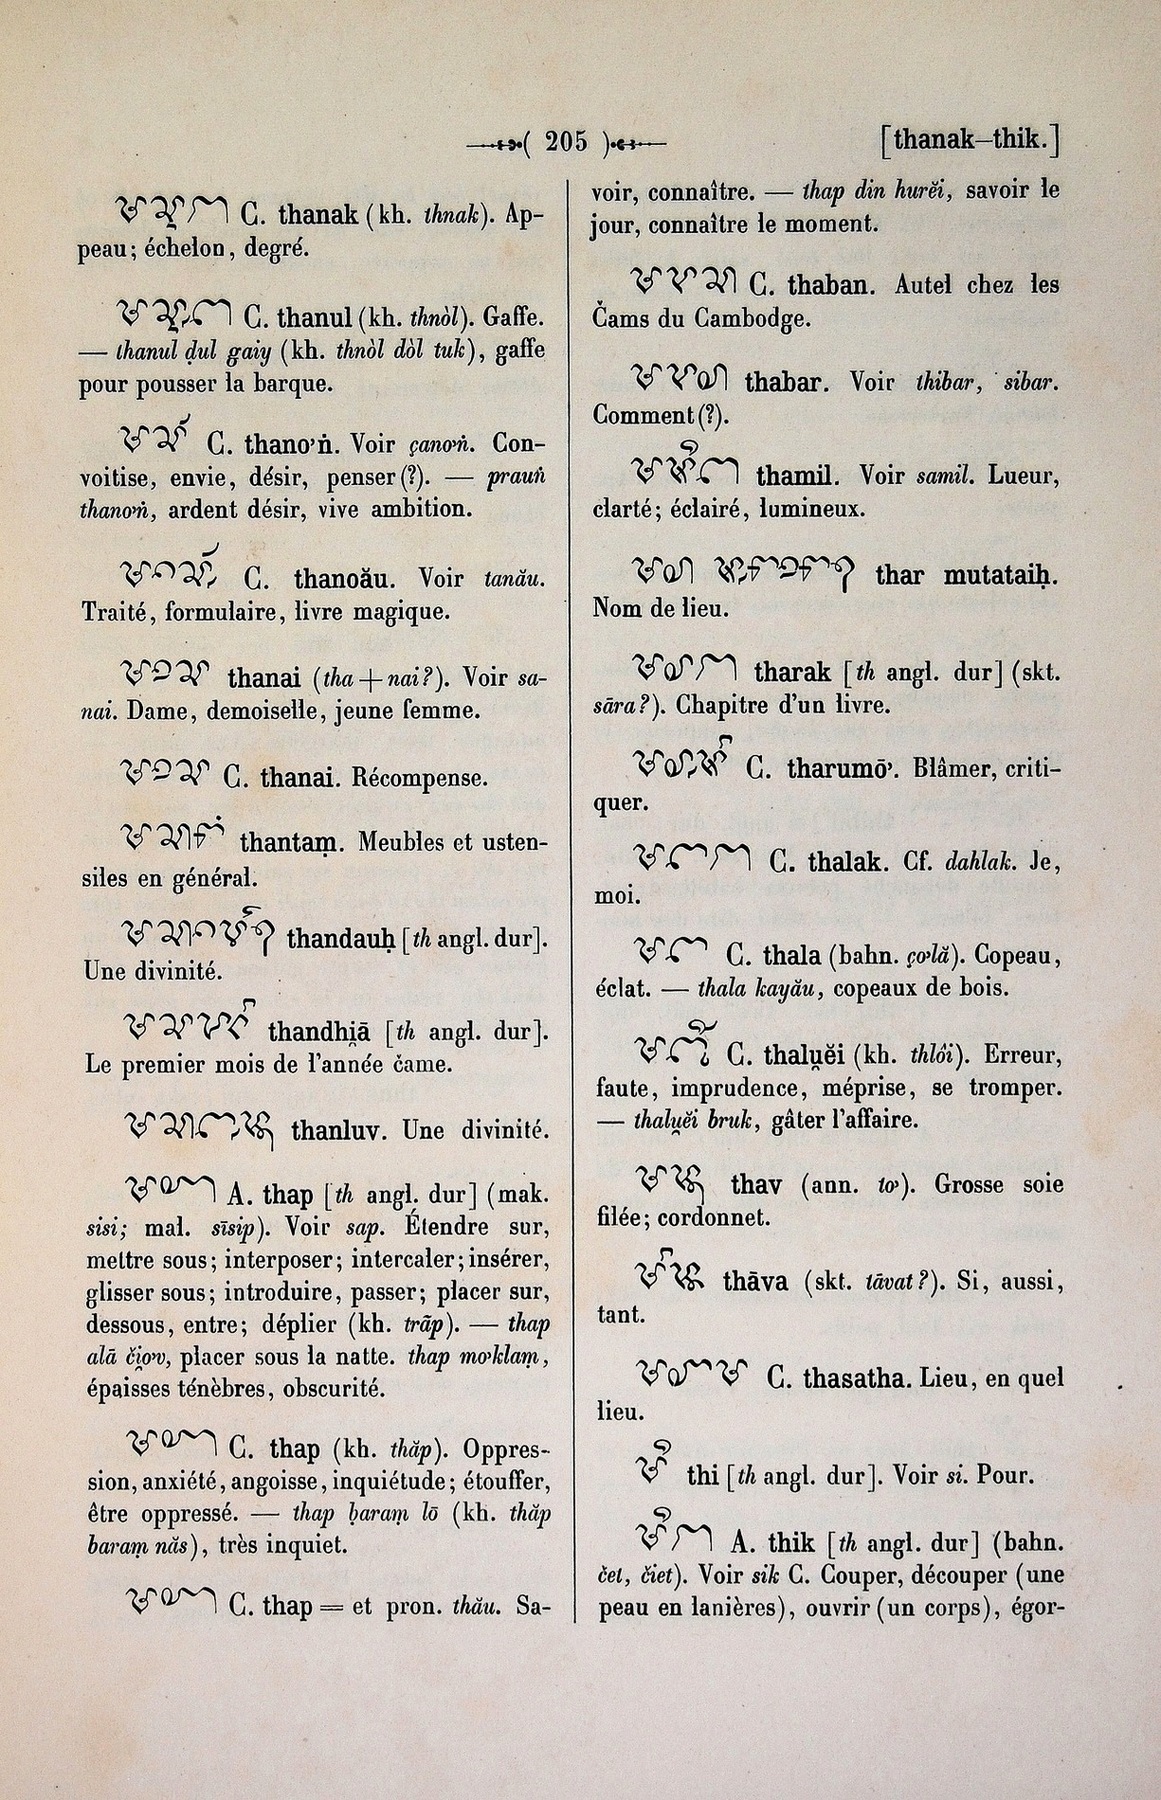 ( 205 )
[thanak–thik.]
C. thanak (kh. thnak). Ap-
peau; échelon, degré.
C. thanul (kh. thnòl). Gaffe.
— thanul ḍul gaiy (kh. thnòl dòl tuk), gaffe
pour pousser la barque.
C. thano’ṅ. Voir çano’ṅ. Con-
voitise, envie, désir, penser (?). — prauṅ
thanoṅ, ardent désir, vive ambition.
C. thanoău. Voir tanău.
Traité, formulaire, livre magique.
thanai (tha + nai?). Voir sa-
nai. Dame, demoiselle, jeune femme.
C. thanai. Récompense.
thantaṃ. Meubles et usten-
siles en général.
thandauḥ [th angl. dur].
Une divinité.
thandhi̯ā [th angl. dur].
Le premier mois de l’année čame.
thanluv. Une divinité.
A. thap [th angl. dur] (mak.
sisi; mal. sīsip). Voir sap. Étendre sur,
mettre sous; interposer; intercaler; insérer,
glisser sous; introduire, passer; placer sur,
dessous, entre; déplier (kh. trāp). — thap
alā či̯o’v, placer sous la natte. thap mo’klaṃ,
épaisses ténèbres, obscurité.
C. thap (kh. thăp). Oppres-
sion, anxiété, angoisse, inquiétude; étouffer,
être oppressé. — thap ḅaraṃ lō (kh. thăp
baraṃ năs), très inquiet.
C. thap = et pron. thău. Sa-
voir, connaître. — thap din hurĕi, savoir le
jour, connaître le moment.
C. thaban. Autel chez les
Čams du Cambodge.
thabar. Voir thibar, sibar.
Comment (?).
thamil. Voir samil. Lueur,
clarté; éclairé, lumineux.
thar mutataiḥ.
Nom de lieu.
tharak [th angl. dur] (skt.
sāra?). Chapitre d’un livre.
C. tharumō’. Blâmer, criti-
quer.
C. thalak. Cf. dahlak. Je,
moi.
C. thala (bahn. ço’lă). Copeau,
éclat. — thala kayău, copeaux de bois.
C. thalu̯ĕi (kh. thlôi). Erreur,
faute, imprudence, méprise, se tromper.
— thalu̯ĕi bruk, gâter l’affaire.
thav (ann. to’). Grosse soie
filée; cordonnet.
thāva (skt. tāvat?). Si, aussi,
tant.
C. thasatha. Lieu, en quel
lieu.
thi [th angl. dur]. Voir si. Pour.
A. thik [th angl. dur] (bahn.
čet, čiet). Voir sik C. Couper, découper (une
peau en lanières), ouvrir (un corps), égor-